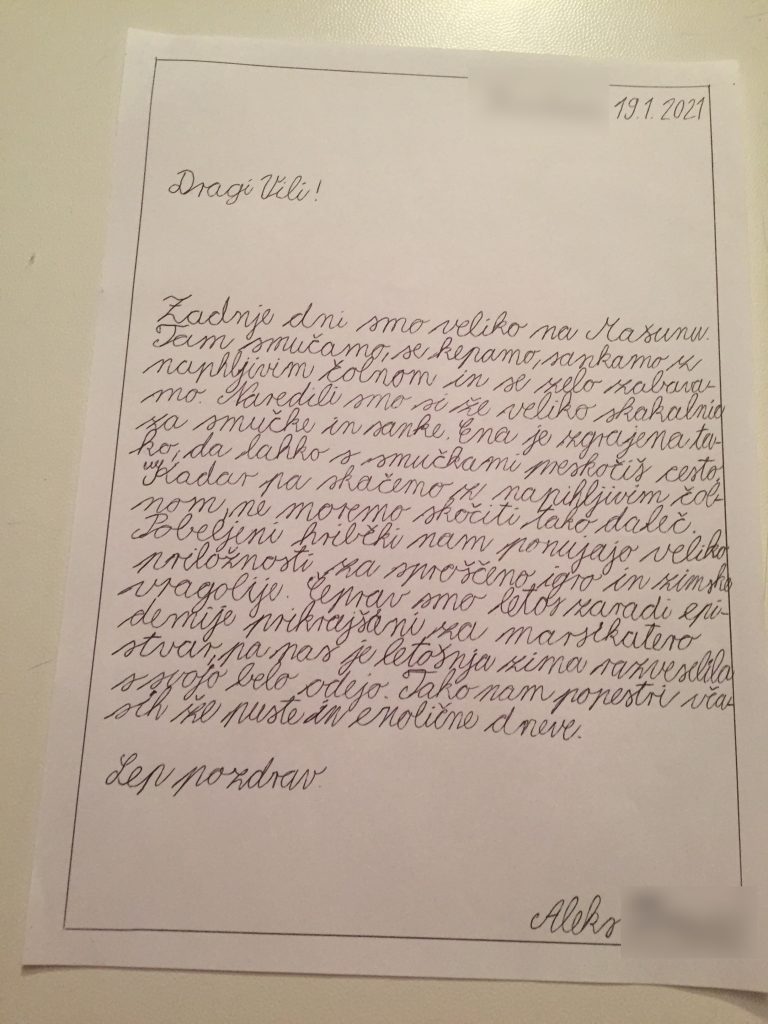 19.1.2021
Dragi Vili!
Zadnje dni smo veliko na Mašunu.
Tam smučamo, se kepamo, sankamo z
napihljivim čolnom in se zelo zabava-
mo. Naredili smo si že veliko skakalnic
za smučke in sanke. Ena je zgrajena ta-
ko, da lahko s smučkami preskočiš cesto.
Kadar pa skačemo z napihljivim čol-
nom, ne moremo skočiti tako daleč.
Pobeljeni hribčki nam ponujajo veliko
priložnosti za sproščeno igro in zimske
vragolije. Čeprav smo letos zaradi epi-
demije prikrajšani za marsikatero
stvar, pa nas je letošnja zima razveselila
s svojo belo odejo. Tako nam popestri vča-
sih že puste in enolične dneve.
Lep pozdrav
Aleks